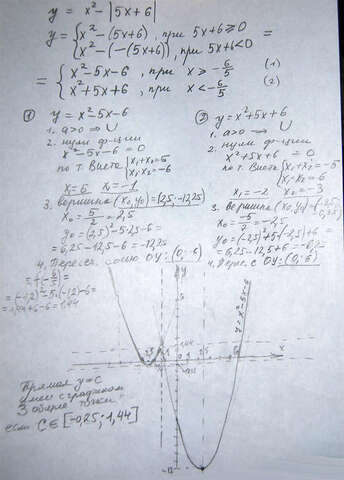 y = x² - |5x + 6|
y = { x² - (5x + 6), при 5x + 6 ≥ 0
x² - (-(5x + 6)), при 5x + 6 < 0 =
= { x² - 5x - 6, при x ≥ -6/5 (1)
x² + 5x + 6, при x < -6/5 (2)
① y = x² - 5x - 6
1. a > 0 ⇒ U
2. нули ф-ции
x² - 5x - 6 = 0
по т. Виета { x₁ + x₂ = 5
x₁ · x₂ = -6
x₁ = 6 x₂ = -1
3. вершина (x₀, y₀) = (2,5; -12,25)
x₀ = 5/2 = 2,5
y₀ = (2,5)² - 5·2,5 - 6 =
= 6,25 - 12,5 - 6 = -12,25
4. Пересеч. с осью OY: (0; -6)
= (-1,2)² - 5·(-1,2) - 6 =
= 1,44 + 6 - 6 = 1,44
② y = x² + 5x + 6
1. a > 0 ⇒ U
2. нули ф-ции
x² + 5x + 6 = 0
по т. Виета { x₁ + x₂ = -5
x₁ · x₂ = 6
x₁ = -2 x₂ = -3
3. вершина (x₀, y₀) = (-2,5; -0,25)
x₀ = -5/2 = -2,5
y₀ = (-2,5)² + 5·(-2,5) + 6 =
= 6,25 - 12,5 + 6 = -0,25
4. Перес. с OY: (0; 6)
y
x
y = x² - 5x - 6
Прямая y = c
имеет с графиком
3 общие точки,
если C ∈ [-0,25; 1,44]